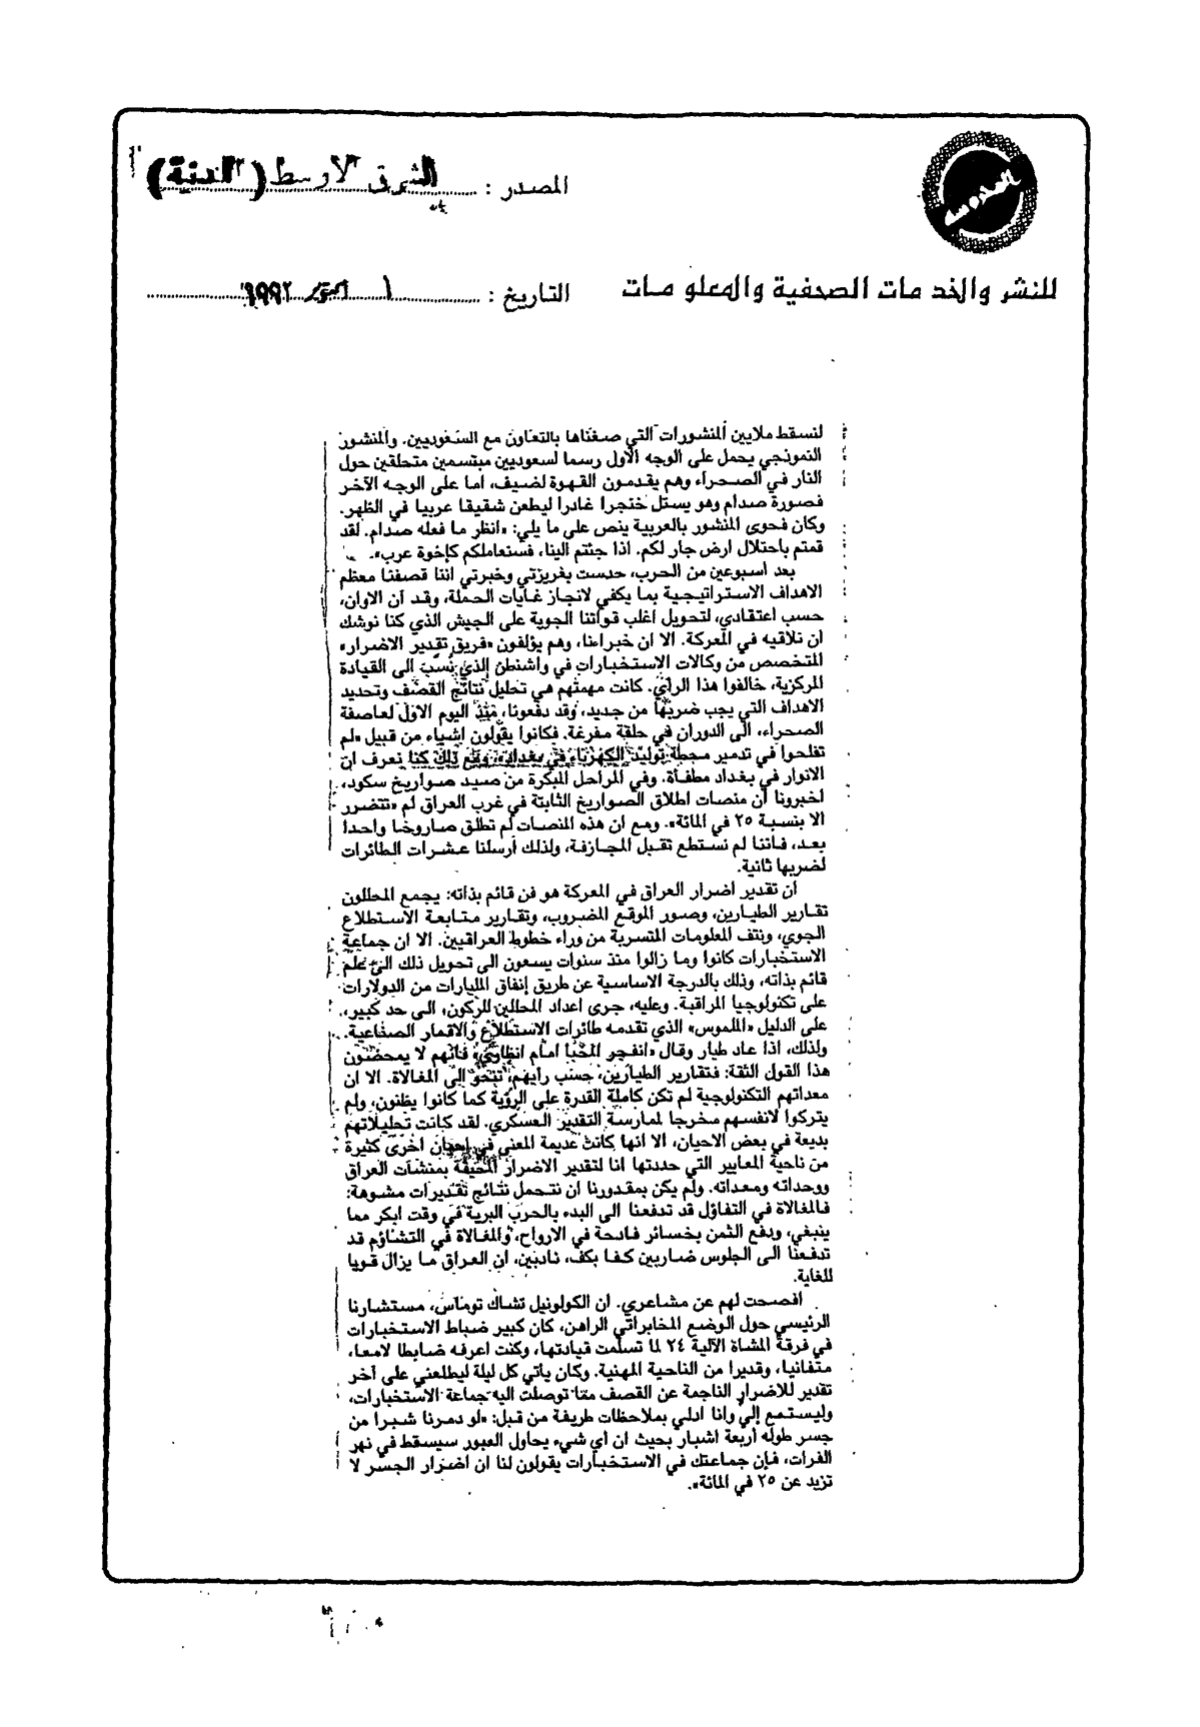 المصدر : الشرق الاوسط
للنشر والخدمات الصحفية والمعلومات
التاريخ : ١ اكتوبر ١٩٩٢
لنسقط ملايين المنشورات التي صغناها بالتعاون مع السعوديين. والمنشور
النموذجي يحمل على الوجه الاول رسما لسعوديين مبتسمين متحلقين حول
النار في الصحراء وهم يقدمون القهوة لضيف، اما على الوجه الآخر
فصورة صدام وهو يستل خنجرا غادرا ليطعن شقيقا عربيا في الظهر.
وكان فحوى المنشور بالعربية ينص على ما يلي: «انظر ما فعله صدام. لقد
قمتم باحتلال ارض جار لكم. اذا جئتم الينا، فسنعاملكم كإخوة عرب».
بعد اسبوعين من الحرب، حدست بغريزتي وخبرتي اننا قصفنا معظم
الاهداف الاستراتيجية بما يكفي لانجاز غايات الحملة، وقد آن الاوان،
حسب اعتقادي، لتحويل اغلب قواتنا الجوية على الجيش الذي كنا نوشك
ان نلاقيه في المعركة. الا ان خبراءنا، وهم يؤلفون «فريق تقدير الاضرار»
المتخصص من وكالات الاستخبارات في واشنطن الذي نُسّب الى القيادة
المركزية، خالفوا هذا الرأي. كانت مهمتهم هي تحليل نتائج القصف وتحديد
الاهداف التي يجب ضربها من جديد، وقد دفعونا، منذ اليوم الاول لعاصفة
الصحراء، الى الدوران في حلقة مفرغة. فكانوا يقولون اشياء من قبيل «لم
تفلحوا في تدمير محطة توليد الكهرباء في بغداد»، ومع ذلك كنا نعرف ان
الانوار في بغداد مطفأة. وفي المراحل المبكرة من صيد صواريخ سكود،
اخبرونا أن منصات اطلاق الصواريخ الثابتة في غرب العراق لم «تتضرر
الا بنسبة ٢٥ في المائة». ومع ان هذه المنصات لم تطلق صاروخا واحدا
بعد، فاننا لم نستطع تقبل المجازفة، ولذلك أرسلنا عشرات الطائرات
لضربها ثانية.
ان تقدير اضرار العراق في المعركة هو فن قائم بذاته: يجمع المحللون
تقارير الطيارين، وصور الموقع المضروب، وتقارير متابعة الاستطلاع
الجوي، ونتف المعلومات المتسربة من وراء خطوط العراقيين. الا ان جماعة
الاستخبارات كانوا وما زالوا منذ سنوات يسعون الى تحويل ذلك الى علم
قائم بذاته، وذلك بالدرجة الاساسية عن طريق إنفاق المليارات من الدولارات
على تكنولوجيا المراقبة. وعليه، جرى اعداد المحللين للركون، الى حد كبير،
على الدليل «الملموس» الذي تقدمه طائرات الاستطلاع والاقمار الصناعية.
ولذلك، اذا عاد طيار وقال «انفجر المخبأ امام انظاري» فانهم لا يمحضون
هذا القول الثقة: فتقارير الطيارين، حسب رأيهم، تنحو الى المغالاة. الا ان
معداتهم التكنولوجية لم تكن كاملة القدرة على الرؤية كما كانوا يظنون، ولم
يتركوا لانفسهم مخرجا لممارسة التقدير العسكري. لقد كانت تحليلاتهم
بديعة في بعض الاحيان، الا انها كانت عديمة المعنى في احيان اخرى كثيرة
من ناحية المعايير التي حددتها انا لتقدير الاضرار المحيقة بمنشآت العراق
ووحداته ومعداته. ولم يكن بمقدورنا ان نتحمل نتائج تقديرات مشوهة:
فالمغالاة في التفاؤل قد تدفعنا الى البدء بالحرب البرية في وقت ابكر مما
ينبغي، ودفع الثمن بخسائر فادحة في الارواح، والمغالاة في التشاؤم قد
تدفعنا الى الجلوس ضاربين كفا بكف، نادبين، ان العراق ما يزال قويا
للغاية.
افصحت لهم عن مشاعري. ان الكولونيل تشاك توماس، مستشارنا
الرئيسي حول الوضع المخابراتي الراهن، كان كبير ضباط الاستخبارات
في فرقة المشاة الآلية ٢٤ لما تسلمت قيادتها، وكنت اعرفه ضابطا لامعا،
متفانيا، وقديرا من الناحية المهنية. وكان يأتي كل ليلة ليطلعني على آخر
تقدير للاضرار الناجمة عن القصف مما توصلت اليه جماعة الاستخبارات،
وليستمع إلي وانا ادلي بملاحظات طريفة من قبل: «لو دمرنا شبرا من
جسر طوله أربعة اشبار بحيث ان أي شيء يحاول العبور سيسقط في نهر
الفرات، فإن جماعتك في الاستخبارات يقولون لنا ان اضرار الجسر لا
تزيد عن ٢٥ في المائة».